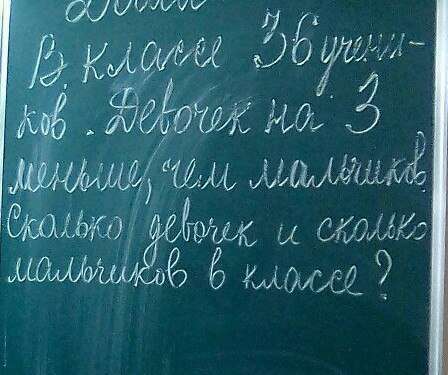 В классе 36 учени-
ков. Девочек на 3
меньше, чем мальчиков.
Сколько девочек и сколько
мальчиков в классе?